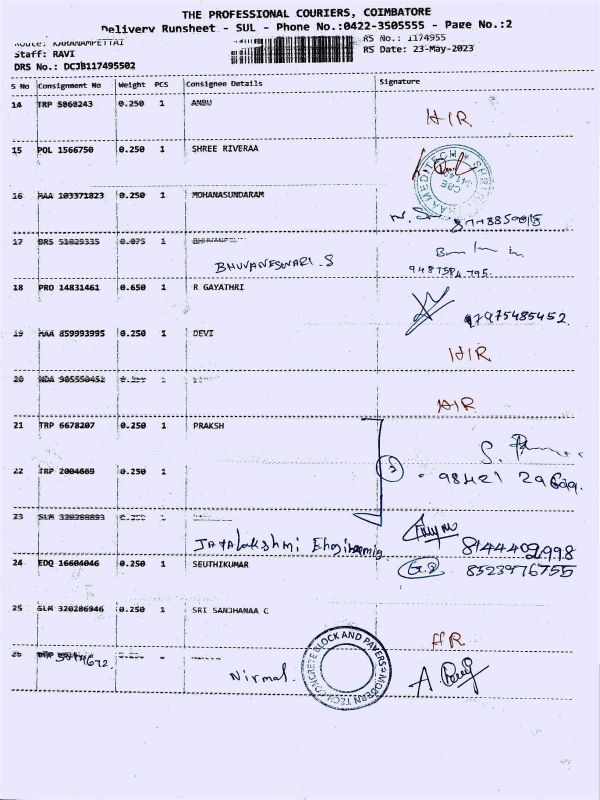 THE PROFESSIONAL COURIERS, COIMBATORE
Delivery Runsheet - SUL - Phone No.:0422-3505555 - Page No.:2
Route: KARANAMPETTAI RS No.: 1174955
Staff: RAVI RS Date: 23-May-2023
DRS No.: DCJB117495502
S No Consignment No Weight PCS Consignee Details Signature
14 TRP 5868243 0.250 1 ANBU HIR
15 POL 1566750 0.250 1 SHREE RIVERAA
16 MAA 103371823 0.250 1 MOHANASUNDARAM
17 BRS 51829335 0.075 1
BHUVANESWARI.S 9487584795.
18 PRO 14831461 0.650 1 R GAYATHRI
97975485452.
19 MAA 859993995 0.250 1 DEVI
HIR
20 NDA 905550452
HIR
21 TRP 6678207 0.250 1 PRAKSH
22 TRP 2004669 0.250 1 3
98421
23 SLM 320288893 0.250 1
Jayalakshmi 8144402998
24 EDQ 16604046 0.250 1 SEUTHIKUMAR G.S 8523976755
25 SLM 320286946 0.250 1 SRI SANDHANAA C
HR
26
Nirmal. MODERN TECH CONCRETE BLOCK AND PAVERS